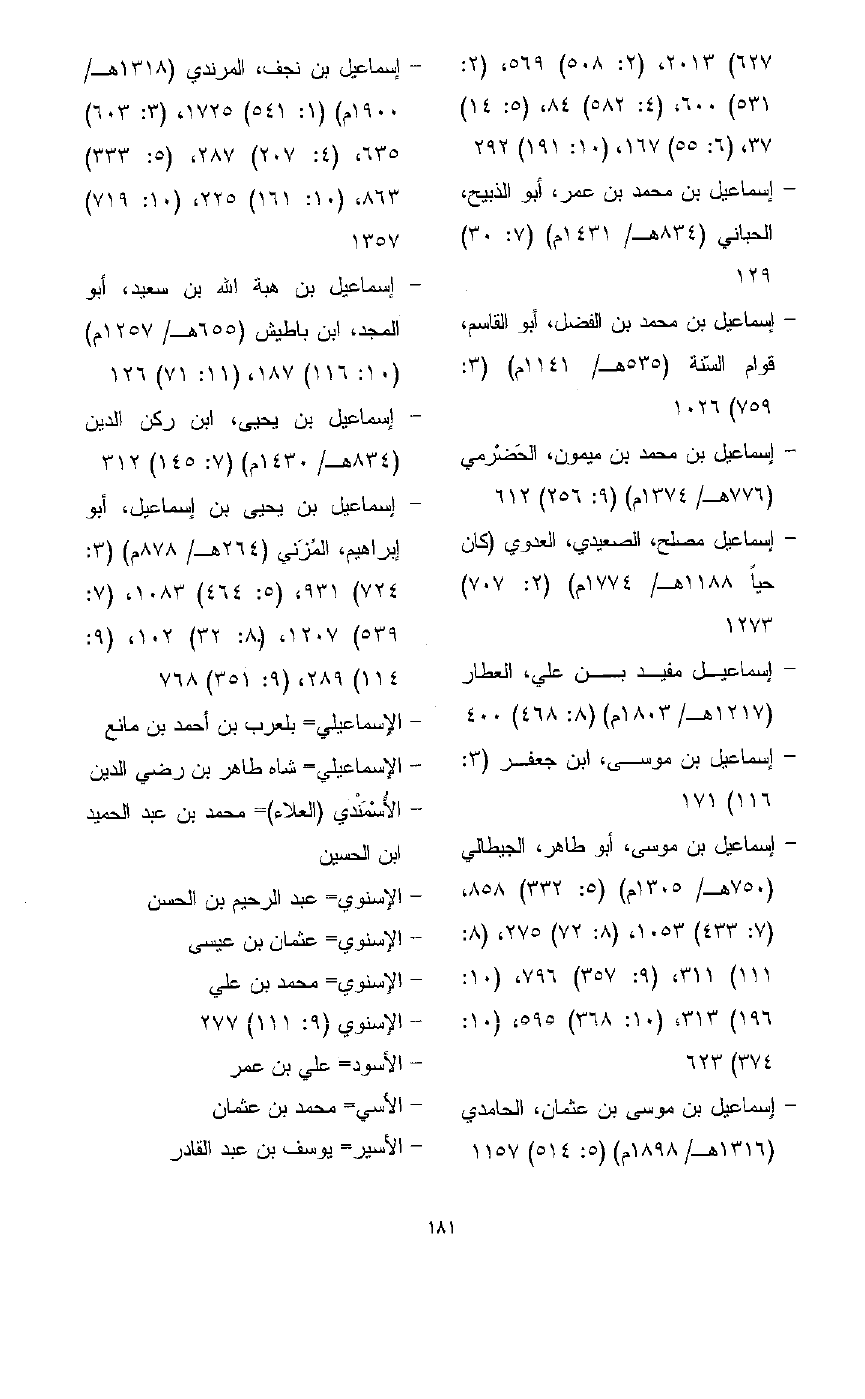 ٦٢٧) ٢٠١٣، (٢: ٥٠٨) ٥٦٩، (٢:
٥٣١) ٦٠٠، (٤: ٥٨٢) ٨٤، (٥: ١٤)
٣٧، (٦: ٥٥) ١٦٧، (١٠: ١٩١) ٢٩٢
- إسماعيل بن محمد بن عمر، أبو الذبيح،
الحباني (٨٣٤هـ/ ١٤٣١م) (٧: ٣٠)
١٢٩
- إسماعيل بن محمد بن الفضل، أبو القاسم،
قوام السنّة (٥٣٥هـ/ ١١٤١م) (٣:
٧٥٩) ١٠٢٦
- إسماعيل بن محمد بن ميمون، الحَضْرمي
(٧٧٦هـ/ ١٣٧٤م) (٩: ٢٥٦) ٦١٢
- إسماعيل مصلح، الصعيدي، العدوي (كان
حياً ١١٨٨هـ/ ١٧٧٤م) (٢: ٧٠٧)
١٢٧٣
- إسماعيل مفيد بن علي، العطار
(١٢١٧هـ/ ١٨٠٣م) (٨: ٤٦٨) ٤٠٠
- إسماعيل بن موسى، ابن جعفر (٣:
١١٦) ١٧١
- إسماعيل بن موسى، أبو طاهر، الجيطالي
(٧٥٠هـ/ ١٣٠٥م) (٥: ٣٣٢) ٨٥٨،
(٧: ٤٣٣) ١٠٥٣، (٨: ٧٢) ٢٧٥، (٨:
١١١) ٣١١، (٩: ٣٥٧) ٧٩٦، (١٠:
١٩٦) ٣١٣، (١٠: ٣٦٨) ٥٩٥، (١٠:
٣٧٤) ٦٢٣
- إسماعيل بن موسى بن عثمان، الحامدي
(١٣١٦هـ/ ١٨٩٨م) (٥: ٥١٤) ١١٥٧
- إسماعيل بن نجف، المرندي (١٣١٨هـ/
١٩٠٠م) (١: ٥٤١) ١٧٢٥، (٣: ٦٠٣)
٦٣٥، (٤: ٢٠٧) ٢٨٧، (٥: ٣٣٣)
٨٦٣، (١٠: ١٦١) ٢٢٥، (١٠: ٧١٩)
١٣٥٧
- إسماعيل بن هبة الله بن سعيد، أبو
المجد، ابن باطيش (٦٥٥هـ/ ١٢٥٧م)
(١٠: ١١٦) ١٨٧، (١١: ٧١) ١٢٦
- إسماعيل بن يحيى، ابن ركن الدين
(٨٣٤هـ/ ١٤٣٠م) (٧: ١٤٥) ٣١٢
- إسماعيل بن يحيى بن إسماعيل، أبو
إبراهيم، المُزَني (٢٦٤هـ/ ٨٧٨م) (٣:
٧٢٤) ٩٣١، (٥: ٤٦٤) ١٠٨٣، (٧:
٥٣٩) ١٢٠٧، (٨: ٣٢) ١٠٢، (٩:
١١٤) ٢٨٩، (٩: ٣٥١) ٧٦٨
- الإسماعيلي= بلعرب بن أحمد بن مانع
- الإسماعيلي= شاه طاهر بن رضي الدين
- الأُسْمَنْدي (العلاء)= محمد بن عبد الحميد
ابن الحسين
- الإسنوي= عبد الرحيم بن الحسن
- الإسنوي= عثمان بن عيسى
- الإسنوي= محمد بن علي
- الإسنوي (٩: ١١١) ٢٧٧
- الأسود= علي بن عمر
- الأسي= محمد بن عثمان
- الأسير= يوسف بن عبد القادر
١٨١